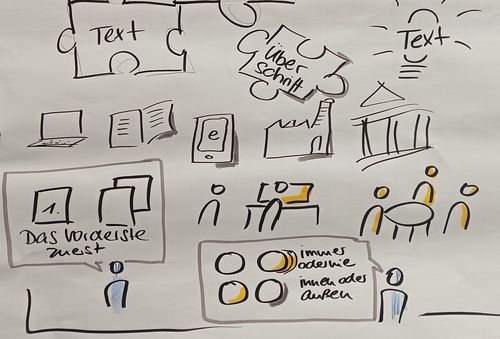 Text
Über
schrift
Text
e
1.
Das Vorderste
zuerst
immer
oder nie
innen oder
außen